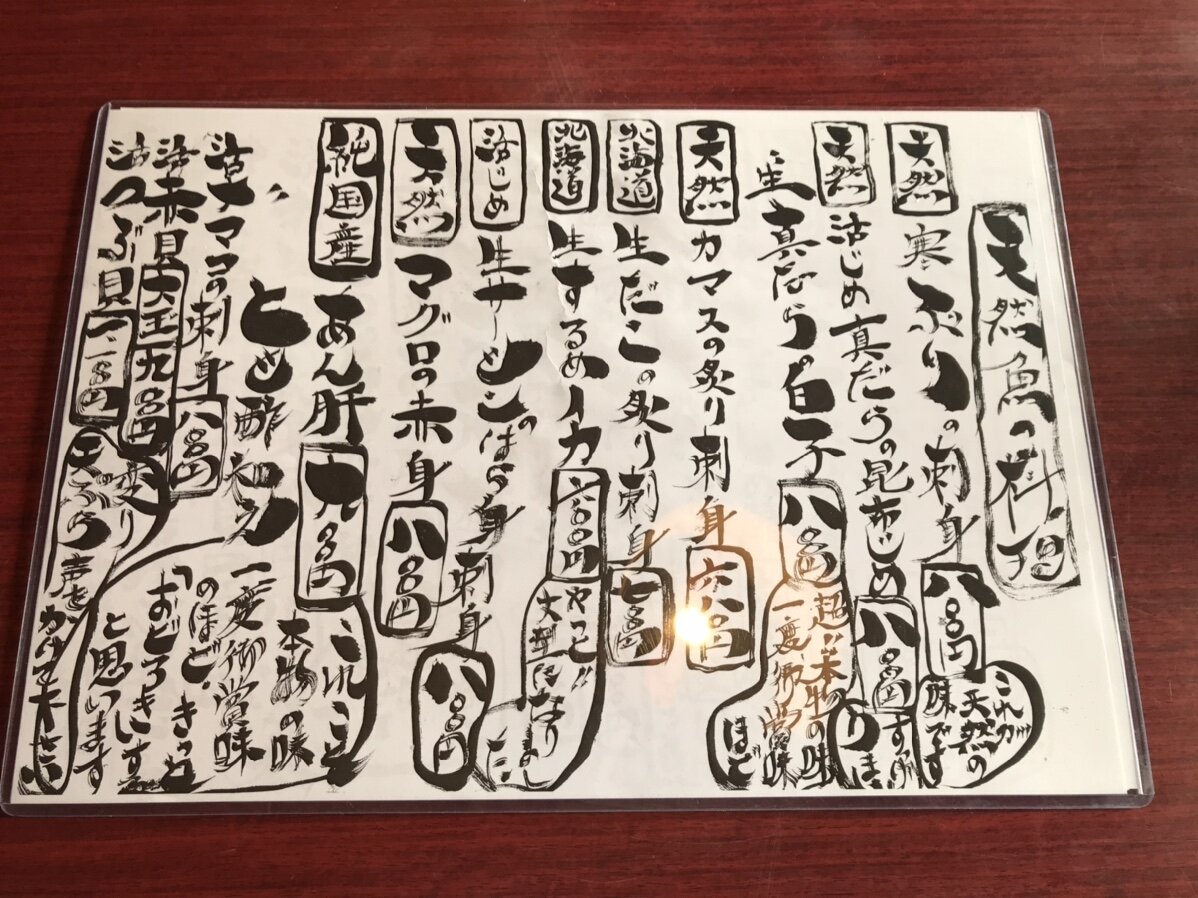 天然魚の料理
天然 寒ぶりの刺身 八〇〇円 これが天然の味です
天然 活じめ真だらの昆布じめ 八〇〇円
生真だらの白子 八〇〇円 超!!本物の味 一度御賞味ほど
天然 カマスの炙り刺身 六八〇円
北海道 生だこの炙り刺身 七〇〇円
北海道 生するめイカ 六〇〇円 やっと!! 大型になり
活じめ 生サーモンのはら身刺身 八〇〇円
天然 マグロの赤身 八〇〇円
純国産 あん肝 九〇〇円 これこそ
とも酢和え 本物の味
一度御賞味のほど、きっと
「おどろきます」と思います
活ナママコの刺身 八〇〇円
活赤貝 大玉 九〇〇円
活つぶ貝 一、一〇〇円 声を